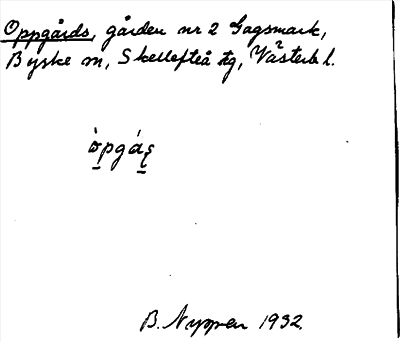 Oppgårds, gården nr 2 Gagsmark,
Byske sn, Skellefteå tg, Västerb l.
òpgás̨
B. Nyman 1932.